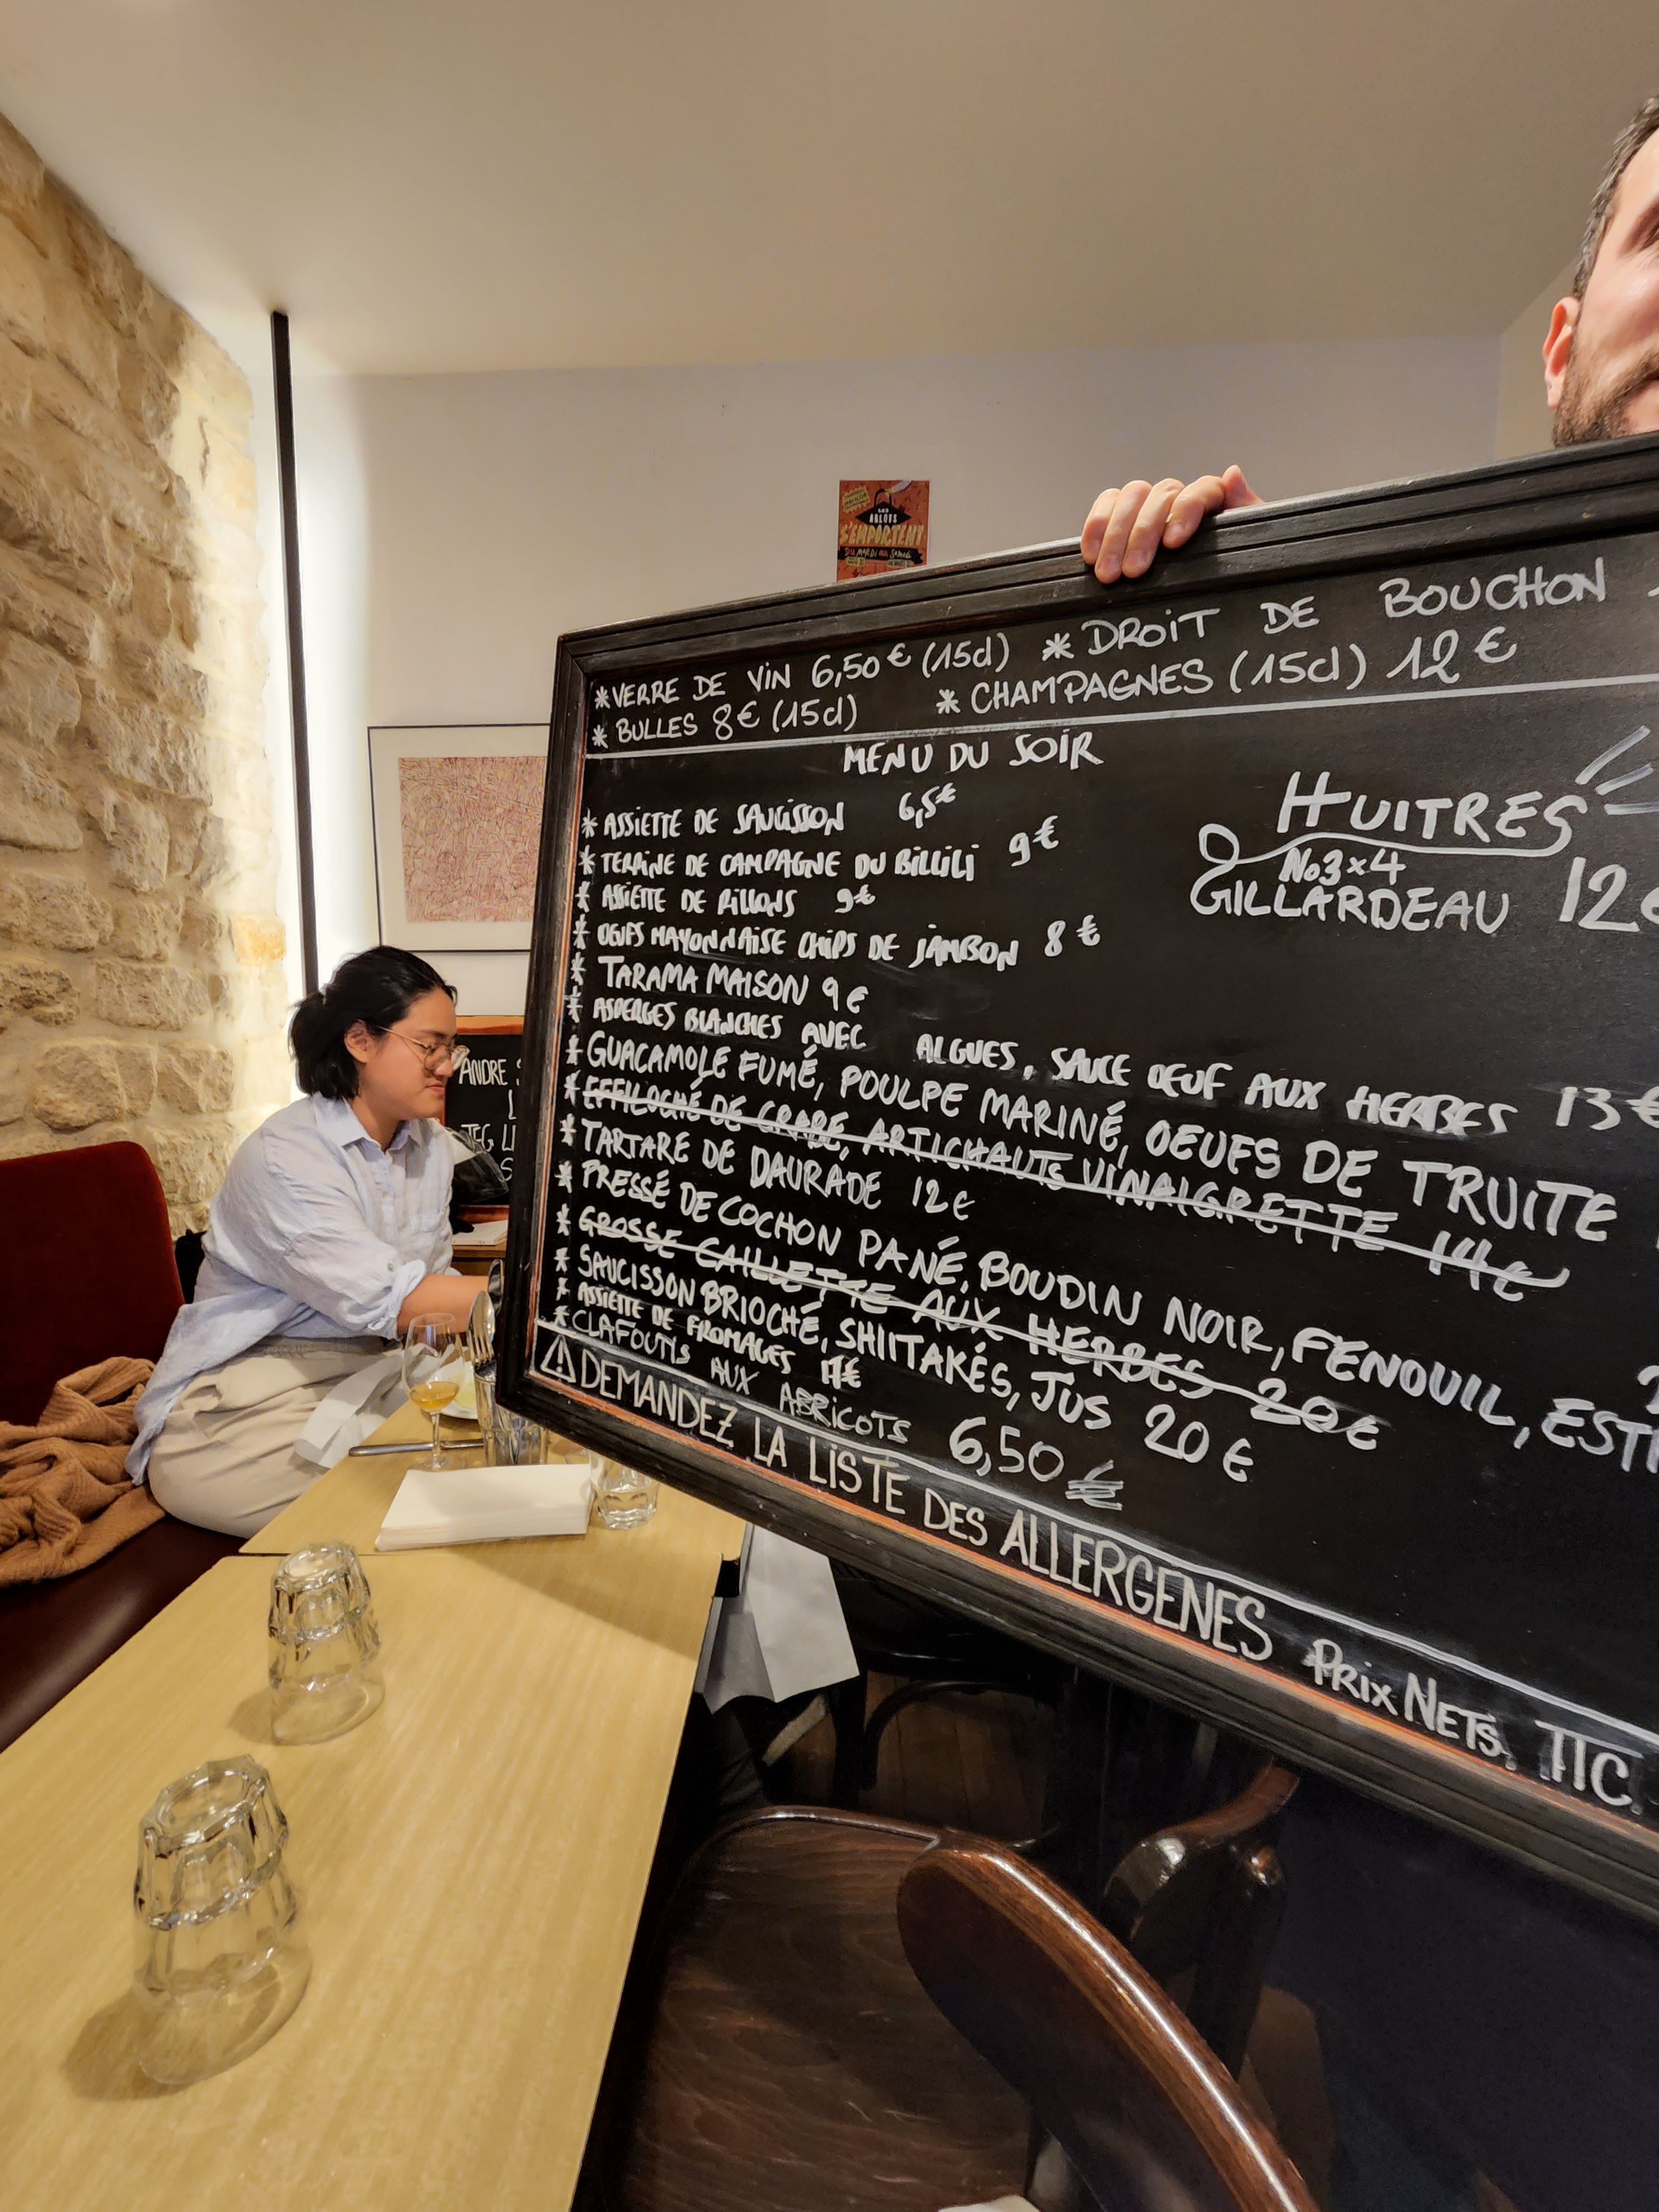 LES
S'EMPORTENT
DU MARDI AU SAMEDI
* VERRE DE VIN 6,50€ (15cl) * DROIT DE BOUCHON
* BULLES 8€ (15cl) * CHAMPAGNES (15cl) 12€
MENU DU SOIR
* ASSIETTE DE SAUCISSON 6,5€
* TERRINE DE CAMPAGNE DU BILLILI 9€
* ASSIETTE DE RILLONS 9€
* OEUFS MAYONNAISE CHIPS DE JAMBON 8€
* TARAMA MAISON 9€
* ASPERGES BLANCHES AVEC ALGUES, SAUCE OEUF AUX HERBES 13€
* GUACAMOLE FUMÉ, POULPE MARINÉ, OEUFS DE TRUITE
* EFFILOCHÉ DE CRABE, ARTICHAUTS VINAIGRETTE 14€
* TARTARE DE DAURADE 12€
* PRESSÉ DE COCHON PANÉ, BOUDIN NOIR, FENOUIL, EST
* GROSSE CAILLETTE AUX HERBES 20€
* SAUCISSON BRIOCHÉ, SHIITAKÉS, JUS 20€
* ASSIETTE DE FROMAGES 11€
* CLAFOUTIS AUX ABRICOTS 6,50€
HUITRES
No3 x 4
GILLARDEAU 12€
⚠ DEMANDEZ LA LISTE DES ALLERGENES PRIX NETS, TTC
ANDRE